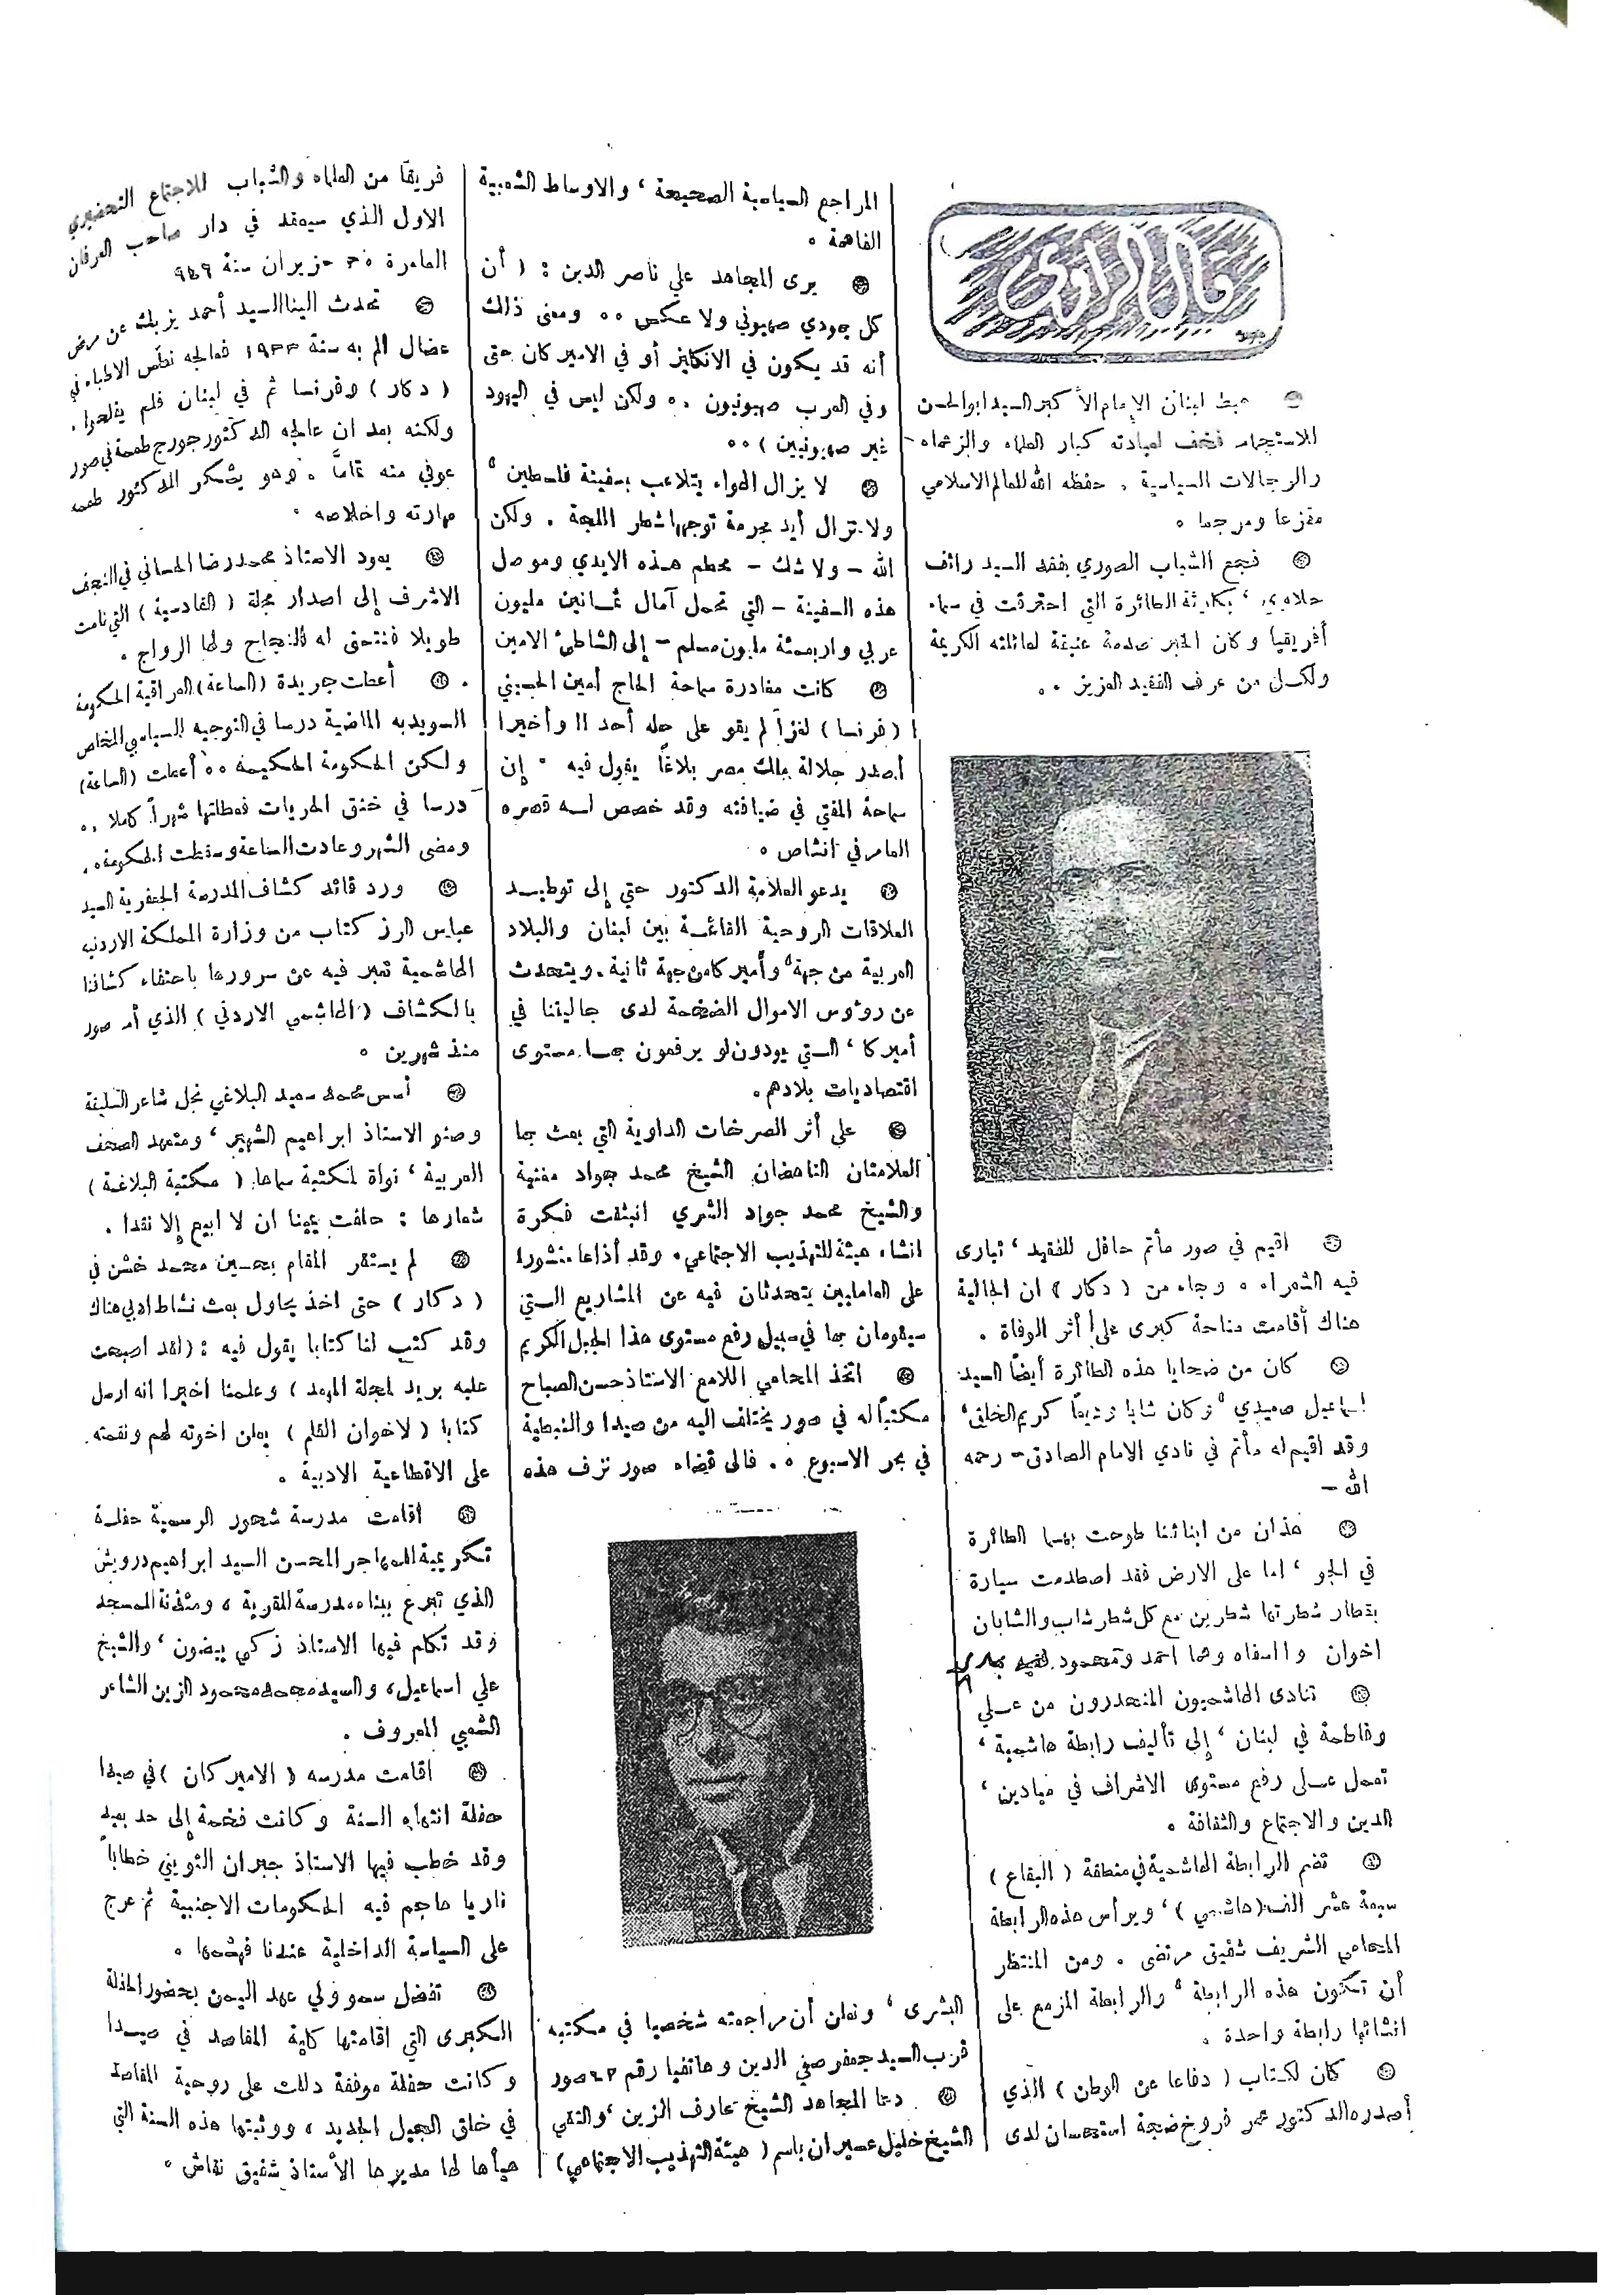 قال الراوي
هبط لبنان الإمام الأكبر السيد ابو الحسن
للاستجمام فخف لعيادته كبار العلماء والزعماء
والرجالات السياسية . حفظه الله للعالم الاسلامي
مفزعا ومرجعا .
فجع الشباب الصوري بفقد السيد رائف
حلاوي ، بكارثة الطائرة التي احترقت في سماء
أفريقيا وكان الخبر صدمة عنيفة لعائلته الكريمة
ولكل من عرف الفقيد العزيز ..
اقيم في صور مأتم حافل للفقيد ، تبارى
فيه الشعراء . وجاء من ( دكار ) ان الجالية
هناك أقامت مناحة كبرى على أثر الوفاة .
كان من ضحايا هذه الطائرة أيضاً السيد
اسماعيل صعيدي ، وكان شابا وديعاً كريم الخلق ،
وقد اقيم له مأتم في نادي الامام الصادق - رحمه
الله -
هذان من ابنائنا طوحت بهما الطائرة
في الجو ، اما على الارض فقد اصطدمت سيارة
بقطار شطرتها شطرين مع كل شطر شاب والشابان
اخوان وااسفاه وهما احمد ومحمود
تنادى الهاشميون المنحدرون من عـلي
وفاطمة في لبنان ، إلى تأليف رابطة هاشمية ،
تعمل عـلى رفع مستوى الاشراف في ميادين ،
الدين والاجتماع والثقافة .
تضم الرابطة الهاشمية في منطقة ( البقاع )
سبعة عشر الف (هاشمي) ، ويرأس هذه الرابطة
المحامي الشريف شفيق مرتضى . ومن المنتظر
أن تكون هذه الرابطة ، والرابطة المزمع على
انشائها رابطة واحدة .
كان لكتاب ( دفاعا عن الوطن ) الذي
أصدره الدكتور عمر فروخ ضجة استحسان لدى
المراجع السياسية الصحيحة ، والاوساط الشعبية
الفاهمة .
يرى المجاهد علي ناصر الدين : ( أن
كل يهودي صهيوني ولا عكس .. ومعنى ذلك
أنه قد يكون في الانكليز أو في الاميركان حتى
وفي العرب صهيونيون .. ولكن ليس في اليهود
غير صهيونيين ) ..
لا يزال الهواء يتلاعب بسفينة فلسطين ،
ولا تزال أيد مجرمة توجهها شطر اللجة . ولكن
الله - ولا شك - محطم هـذه الايدي وموصل
هذه السفينة - التي تحمل آمال ثمـانين مليون
عربي واربعمئة مليون مسلم - إلى الشاطئ الامين
كانت مغادرة سماحة الحاج أمين الحسيني
( فرنسا ) لغزاً لم يقو على حله أحد !! وأخيرا
أصدر جلالة ملك مصر بلاغاً يقول فيه ، إن
سماحة المفتي في ضيافته وقد خصص لـه قصره
العامر في انشاص .
يدعو العلامة الدكتور حتي إلى توطيـد
العلاقات الروحية القائمـة بين لبنان والبلاد
العربية من جهة ، وأميركا من جهة ثانية . ويتحدث
عن رؤوس الاموال الضخمة لدى جاليتنا في
أميركا ، الـتي يودون لو يرفعون بهـا مستوى
اقتصاديات بلادهم .
على أثر الصرخات الداوية التي بعث بها
العلامتان الناهضان الشيخ محمد جواد مغنية
والشيخ محمد جواد الشري انبثقت فكرة
انشاء هيئة للتهذيب الاجتماعي . وقد أذاعا منشورا
على العامليين يتحدثان فيه عن المشاريع الـتي
سيقومان بها في سبيل رفع مستوى هذا الجبل الكريم
اتخذ المحامي اللامع الاستاذ حسن الصباح
مكتباً له في صور يختلف اليه من صيدا والنبطية
في بحر الاسبوع .. فالى قضاء صور نزف هذه
البشرى ، ونعلن أن مراجعته شخصيا في مكتبه
قرب السيد جعفر صفي الدين وهاتفيا رقم ٤٣ صور
دعا المجاهد الشيخ عارف الزين ، والتقي
الشيخ خليل عسيران باسم ( هيئة التهذيب الاجتماعي)
فريقاً من العلماء والشباب للاجتماع التحضيري
الاول الذي سيعقد في دار صاحب العرفان
العامرة ٣٠ حزيران سنة ٩٤٦
تحدث الينا السيد أحمد يزبك عن مرض
عضال الم به سنة ١٩٣٣ فعالجه نطس الاطباء في
( دكار ) وفرنسا ثم في لبنان فلم يفلحوا .
ولكنه بعد ان عالجه الدكتور جورج طعمة في صور
عوفي منه تماماً . وهو يشكر الدكتور طعمه
مهارته واخلاصه .
يعود الاستاذ محمد رضا الحساني في النجف
الاشرف إلى اصدار مجلة ( القادسية ) التي نامت
طويلا فنتحق له النجاح ولها الرواج .
أعطت جريدة (الساعة) العراقية الحكومة
السويديه الماضية درسا في التوجيه السياسي المخلص
ولـكن الحكومة الحكيمة .. أعطت (الساعة)
درسا في خنق الحريات فعطلتها شهراً كاملا ..
ومضى الشهر وعادت الساعة وسقطت الحكومة ..
ورد قائد كشاف المدرسة الجعفرية السيد
عباس الرز كتاب من وزارة المملكة الاردنيه
الهاشمية تعبر فيه عن سرورها باحتفاء كشافنا
بالكشاف ( الهاشمي الاردني ) الذي أم صور
منذ شهرين .
أسس محمد سعيد البلاغي نجل شاعر السليقة
وصنو الاستاذ ابراهيم الشهير ، ومتعهد الصحف
العربية ، نواة لمكتبة سماها ( مكتبة البلاغة )
شعارها : حلفت يمينا ان لا ابيع إلا نقدا .
لم يستقر المقام بحسين محمد خشن في
( دكار ) حتى اخذ يحاول بعث نشاط ادبي هناك
وقد كتب لنا كتابا يقول فيه : ( لقد اصبحت
عليه بريد لمجلة المعهد ) وعلمنا اخيرا انه ارسل
كتابا ( لاخوان القلم ) يعلن اخوته لهم ونقمته
على الاقطاعية الادبية .
اقامت مدرسة شحور الرسمية حفلـة
تكريمية للمهاجر المحسن السيد ابراهيم درويش
الذي تبرع ببناء مدرسة القرية ، ومئذنة المسجد
وقد تكلم فيها الاستاذ زكي بيضون ، والشيخ
علي اسماعيل ، والسيد محمد محمود الزين الشاعر
الشعبي المعروف .
اقامت مدرسه ( الاميركان ) في صيدا
حفلة انتهاء السنة وكانت فخمة إلى حد بعيد
وقد خطب فيها الاستاذ جبران التويني خطاباً
ناريا هاجم فيه الحكومات الاجنبية ثم عرج
على السياسة الداخلية عندنا فهشمها .
تفضل سمو ولي عهد اليمن بحضور الحفلة
الكبرى التي اقامتها كلية المقاصد في صيـدا
وكانت حفلة موفقة دلت على روحية المقاصد
في خلق الجيل الجديد ، ووثبتها هذه السنة التي
هيأها لها مديرها الأستاذ شفيق نقاش .